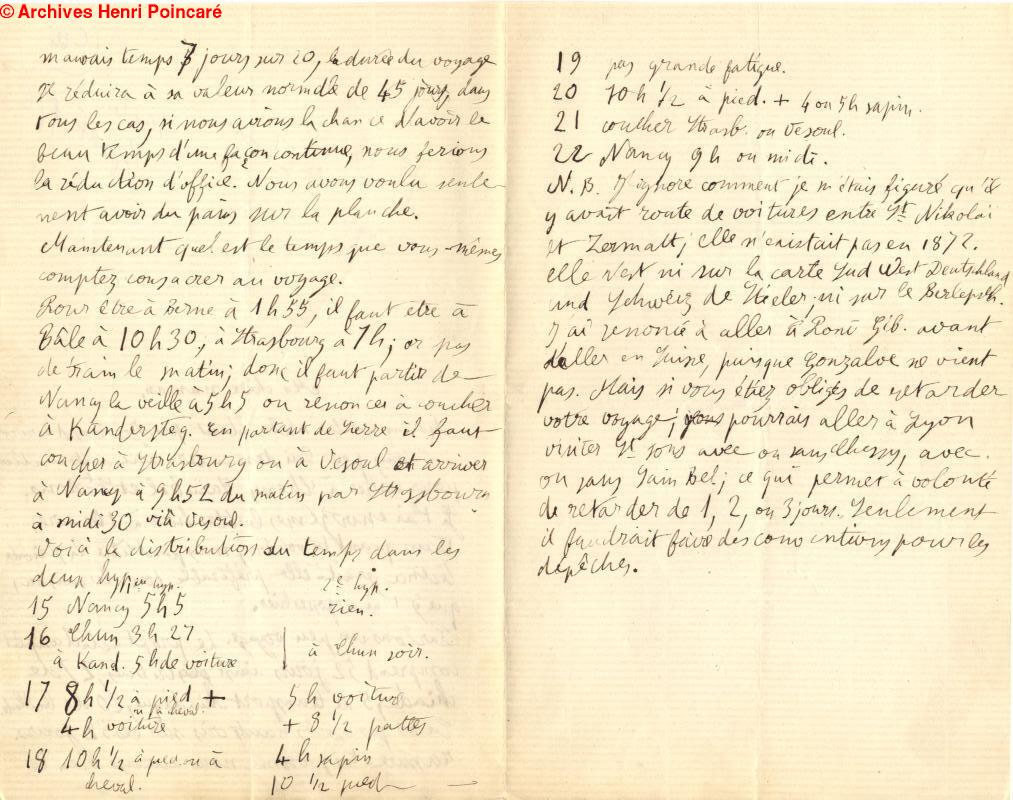 © Archives Henri Poincaré
mauvais temps 7 jours sur 20, la durée du voyage
se réduira à sa valeur normale de 45 jours, dans
tous les cas, si nous avions la chance d'avoir le
beau temps d'une façon continue, nous ferions
la réduction d'office. Nous avons voulu seule-
ment avoir du pain sur la planche.
Maintenant quel est le temps que vous-mêmes
comptez consacrer au voyage.
Pour être à Berne à 1h55, il faut être à
Bâle à 10h30, à Strasbourg à 7h; or pas
de train le matin; donc il faut partir de
Nancy la veille à 5h5 ou renoncer à coucher
à Kandersteg. En partant de Sierre il faut
coucher à Strasbourg ou à Vesoul et arriver
à Nancy à 9h52 du matin par Strasbourg
à midi 30 viâ Vesoul.
Voici la distribution du temps dans les
deux hyp.
1ère hyp. 2e hyp.
15 Nancy 5h5 rien.
16 Thun 3h27
à Kand. 5h de voiture à Thun soir.
17 8h 1/2 à pied + 5h voiture
ou à cheval.
4h voiture + 8 1/2 pattes
18 10h 1/2 à pied ou à 4h sapin
cheval. 10 1/2 pied
19 pas grande fatigue.
20 10h 1/2 à pied. + 4 ou 5h sapin.
21 coucher Strasb. ou Vesoul.
22 Nancy 9h ou midi.
N.B. J'ignore comment je m'étais figuré qu'il
y avait route de voitures entre St Nikolaï
et Zermatt; elle n'existait pas en 1872.
elle n'est ni sur la carte Sud West Deutschland
und Schweiz de Stieler ni sur le Berlepsch.
J'ai renoncé à aller à Ronc Gib. avant
d'aller en Suisse, puisque Gonzalve ne vient
pas. Mais si vous étiez obligés de retarder
votre voyage; je pourrais aller à Lyon
visiter St Fons avec ou sans Chessy, avec
ou sans Sain Bel; ce qui permet à volonté
de retarder de 1, 2, ou 3 jours. Seulement
il faudrait faire des conventions pour les
dépêches.